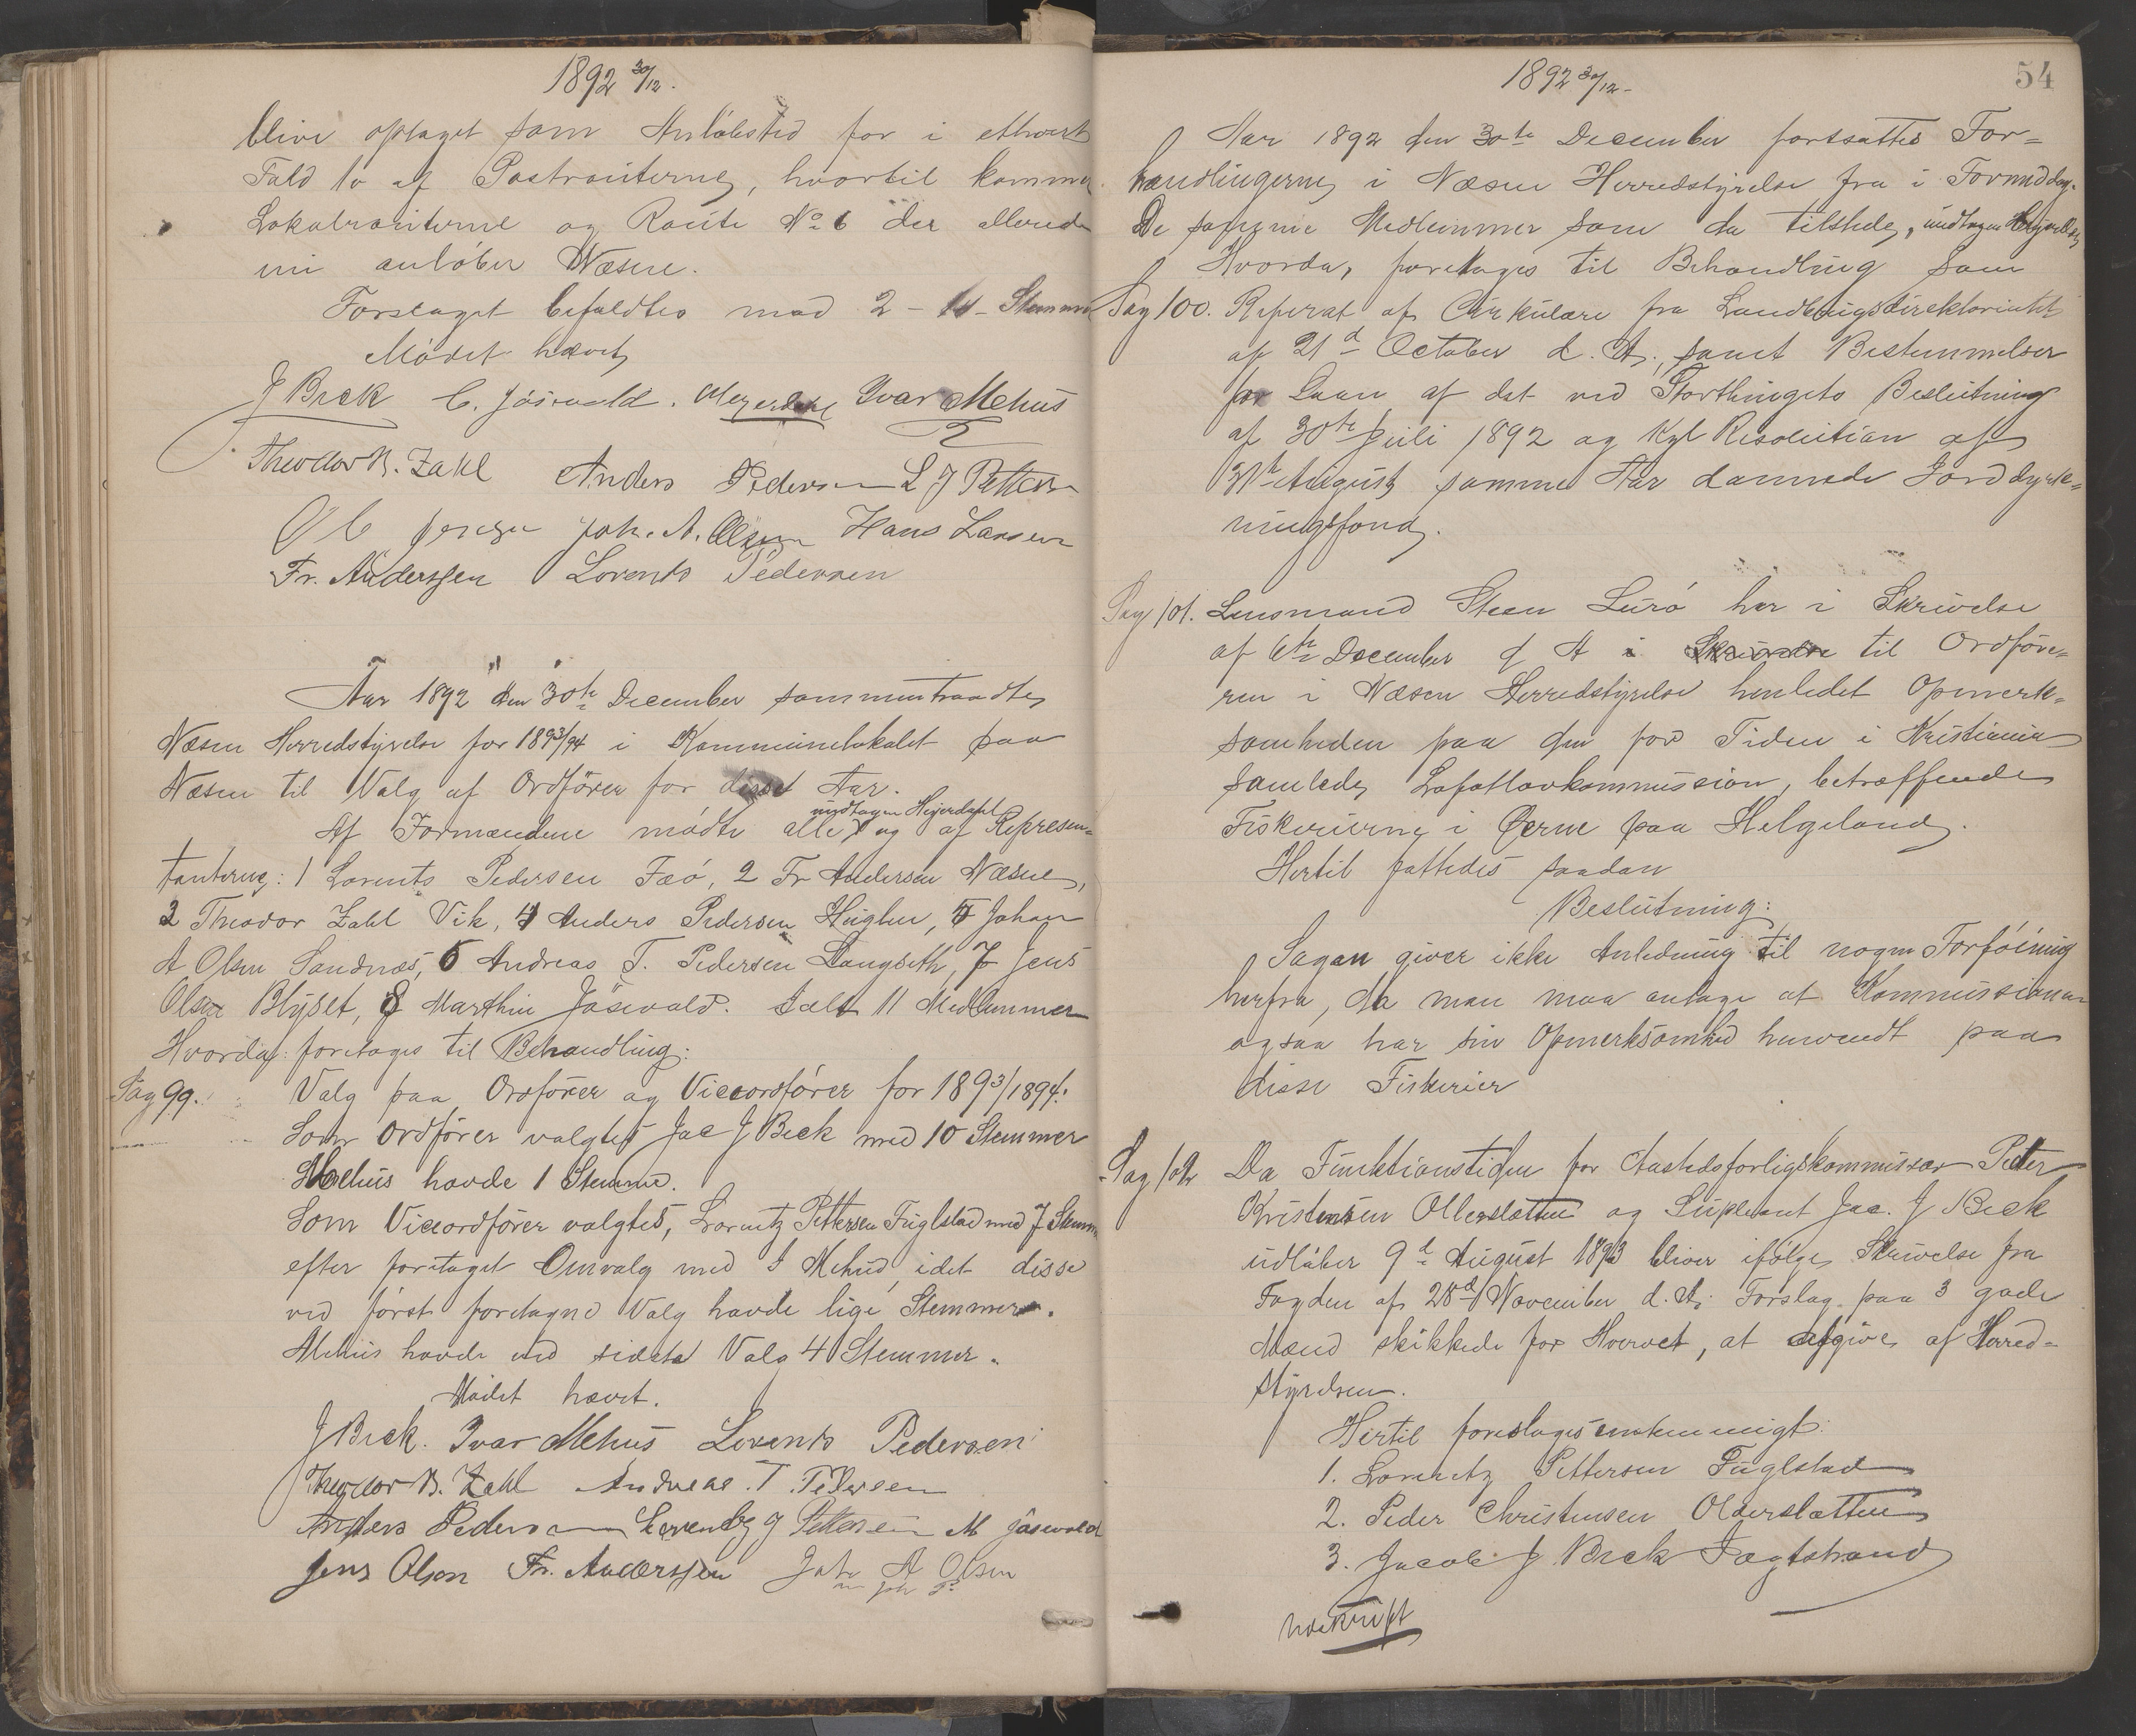 1892 30/12.
blive optaget som Anløbested for i ethvert
Fald to af Postrouterne, hvortil kommer
Lokalrouterne og Route No 6 der allerede
nu anløber Næsne.
Forslaget bifaldtes mod 2 - Stemmer
Mödet hævet
J Beck C. Jösevold. Meyerdahl Ivar Mehus
Theodor B. Zahl Anders Pedersen L J Pettersen
O C Jensen Joh. A. Olsen Hans Larsen
Fr. Anderssen Lorents Pedersen
Aar 1892 den 30te December sammentraadte
Næsne Herredstyrelse for 1893/94 i Kommunelokalet paa
Næsne til Valg af Ordförer for disse Aar.
undtagen Heyerdahl
Af Formændene mödte alle og af Represen-
tanterne: 1 Lorents Pedersen Fæö, 2 Fr Andersen Næsne,
3 Theodor Zahl Vik, 4 Anders Pedersen Huglen, 5 Johan
A Olsen Sandnæs, 6 Andreas T. Pedersen Langseth, 7 Jens
Olsen Blyset, 8 Marthin Jösevold. Ialt 11 Medlemmer
Hvorda foretages til Behandling:
Sag 99. Valg paa Ordförer og Viceordförer for 1893/1894.
Som Ordförer valgtes Jac J Beck med 10 Stemmer
Mehus havde 1 Stemme.
Som Viceordförer valgtes, Lorentz Pettersen Fuglstad med 7 Stemmer
efter foretaget Omvalg med I Mehus, idet disse
ved först foretagne Valg havde lige Stemmer.
Mehus havde ved sidste Valg 4 Stemmer.
Mödet hævet.
J Beck. Ivar Mehus Lorents Pedersen
Theodor B. Zahl Andreas T. Pedersen
Anders Pedersen Lorentz J Pettersen M Jösevold
Jens Olsen Fr. Anderssen Joh A Olsen
m. p. P.
1892 30/12-
54
Aar 1892 den 30te December fortsattes For=
handlingerne i Næsne Herredstyrelse fra i Formiddag.
De samme Medlemmer som da tilstede, undtagen
Hvorda, foretages til Behandling som
Sag 100. Referat af Cirkulære fra Landbrugsdirektoriatet
af 21d October d. A., samt Bestemmelser
for Laan af det ved Storthingets Beslutning
af 30te Juli 1892 og Kgl Resolution af
31te August samme Aar dannede Jorddyrk=
ningsfond.
Sag 101. Lensmand Steen Lurö har i Skrivelse
af 6te December d A i Skrivelse til Ordföre=
ren i Næsne Herredstyrelse henledet Opmerk=
somheden paa den for Tiden i Kristiania
samlede Lofotlovkommission, betræffende
Fiskerierne i Öerne paa Helgeland.
Hertil fattedes saadan
Beslutning:
Sagen giver ikke Anledning til nogen Forföining
herfra, da man maa antage at Kommissionen
ogsaa har sin Opmerksomhed henvendt paa
disse Fiskerier
Sag 102 Da Funktionstiden for Aastedsforligskommissær Peter
Kristensen Olderslætten og Supleant Jac. J Beck
udlöber 9d August 1893 bliver ifölge Skrivelse fra
Fogden af 28d November d. A. Forslag paa 3 gode
Mænd skikkede for Hvervet, at afgive af Herred=
styrelsen.
Hertil foreslages enstemmigt:
1. Lorentz Pettersen Fuglstad
2. Peder Christensen Olderslætten
3. Jacob J Beck Jægtstrand
Udskrift